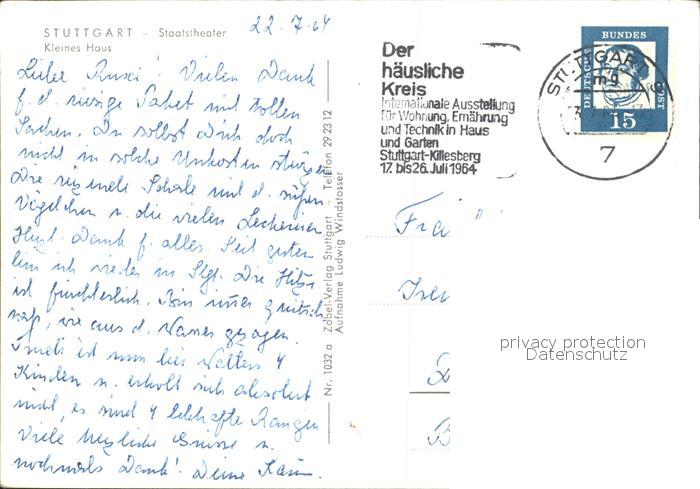 STUTTGART – Staatstheater
Kleines Haus
22.7.64
Vielen Dank
f. d. riesige Paket mit tollen
Sachen. Du sollst Dich doch
nicht in solche Unkosten stürzen.
Die reizende Schale mit d. süßen
Vögelchen u. die vielen Leckereien
Herzl. Dank f. alles. Seit gestern
bin ich wieder in Stgt. Die Hitze
ist fürchterlich. Bin immer
naß, wie aus d. Wasser gezogen.
ist nun bei Walters 4
Kindern u. erholt sich absolut
nicht, es sind 4 lebhafte Rangen
Viele herzliche Grüsse u.
nochmals Dank! Deine
Nr. 1032 a Zobel-Verlag Stuttgart – Telefon 29 23 12
Aufnahme Ludwig Windstosser
Der
häusliche
Kreis
Internationale Ausstellung
für Wohnung, Ernährung
und Technik in Haus
und Garten
Stuttgart-Killesberg
17. bis 26. Juli 1964
STUTTGART
7
DEUTSCHE BUNDESPOST
15
privacy protection
Datenschutz